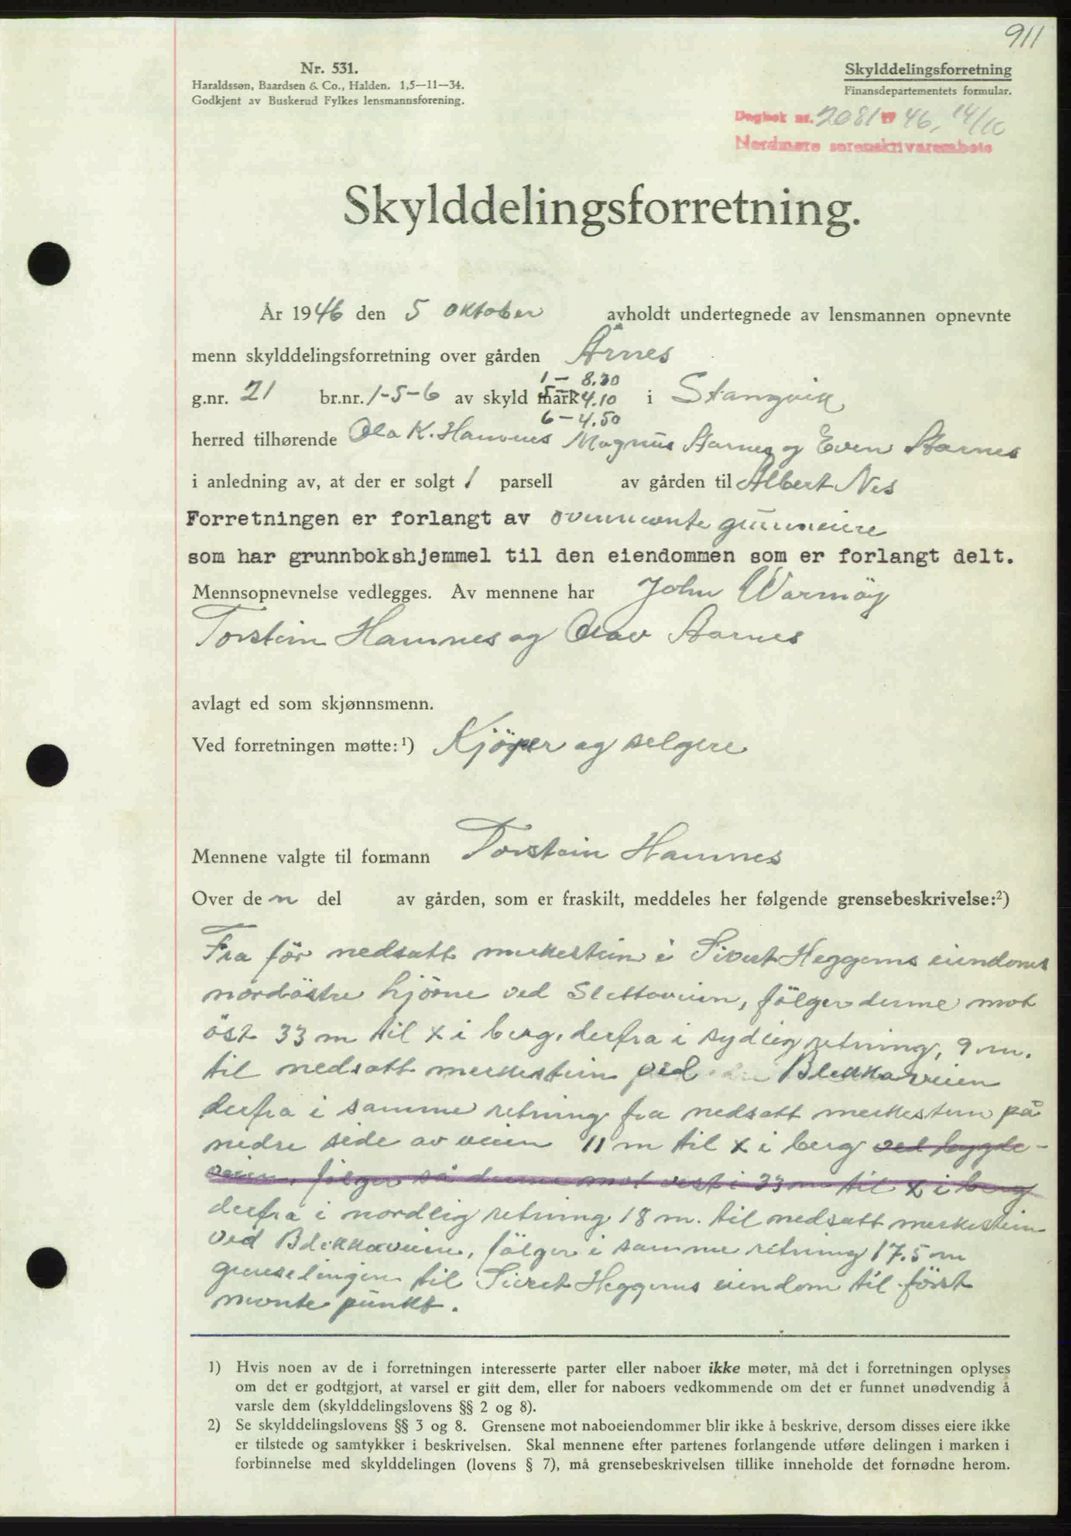 911
Nr. 531.
Haraldssøn, Baardsen & Co., Halden. 1,5—11—34.
Godkjent av Buskerud Fylkes lensmannsforening.
Skylddelingsforretning
Finansdepartementets formular.
Dagbok nr. 2081 19 46, 14/10
Nordmøre sorenskriverembete
Skylddelingsforretning.
År 1946 den 5 oktober avholdt undertegnede av lensmannen opnevnte
menn skylddelingsforretning over gården Årnes
1 — 8.30
g.nr. 21 br.nr. 1-5-6 av skyld mark 5 — 4.10 i Stangvik
6 — 4.50
herred tilhørende Ola K. Hamnes Magnus Aarnes og Even Aarnes
i anledning av, at der er solgt 1 parsell av gården til Albert Nes
Forretningen er forlangt av ovennevnte grunneiere
som har grunnbokshjemmel til den eiendommen som er forlangt delt.
Mennsopnevnelse vedlegges. Av mennene har John Warmøy
Torstein Hamnes og Olav Aarnes
avlagt ed som skjønnsmenn.
Ved forretningen møtte:¹) Kjöper og selgere
Mennene valgte til formann Torstein Hamnes
Over den del av gården, som er fraskilt, meddeles her følgende grensebeskrivelse:²)
Fra för nedsatt merkestein i Sivert Heggems eiendoms
nordöstre hjörne ved Slettaveien, fölger denne mot
öst 33 m til x i berg, derfra i sydlig retning, 9 m.
til nedsatt merkestein ved Blekkaveien
derfra i samme retning fra nedsatt merkestein på
nedre side av veien 11 m til x i berg ved bygde-
veien, fölger så denne mot vest i 33 m til x i berg
derfra i nordlig retning 18 m. til nedsatt merkestein
ved Blekkaveien, fölger i samme retning 17.5 m
grenselinjen til Sivert Heggems eiendom til först
nevnte punkt.
1) Hvis noen av de i forretningen interesserte parter eller naboer ikke møter, må det i forretningen oplyses
om det er godtgjort, at varsel er gitt dem, eller for naboers vedkommende om det er funnet unødvendig å
varsle dem (skylddelingslovens §§ 2 og 8).
2) Se skylddelingslovens §§ 3 og 8. Grensene mot naboeiendommer blir ikke å beskrive, dersom disses eiere ikke
er tilstede og samtykker i beskrivelsen. Skal mennene efter partenes forlangende utføre delingen i marken i
forbinnelse med skylddelingen (lovens § 7), må grensebeskrivelsen tillike inneholde det fornødne herom.